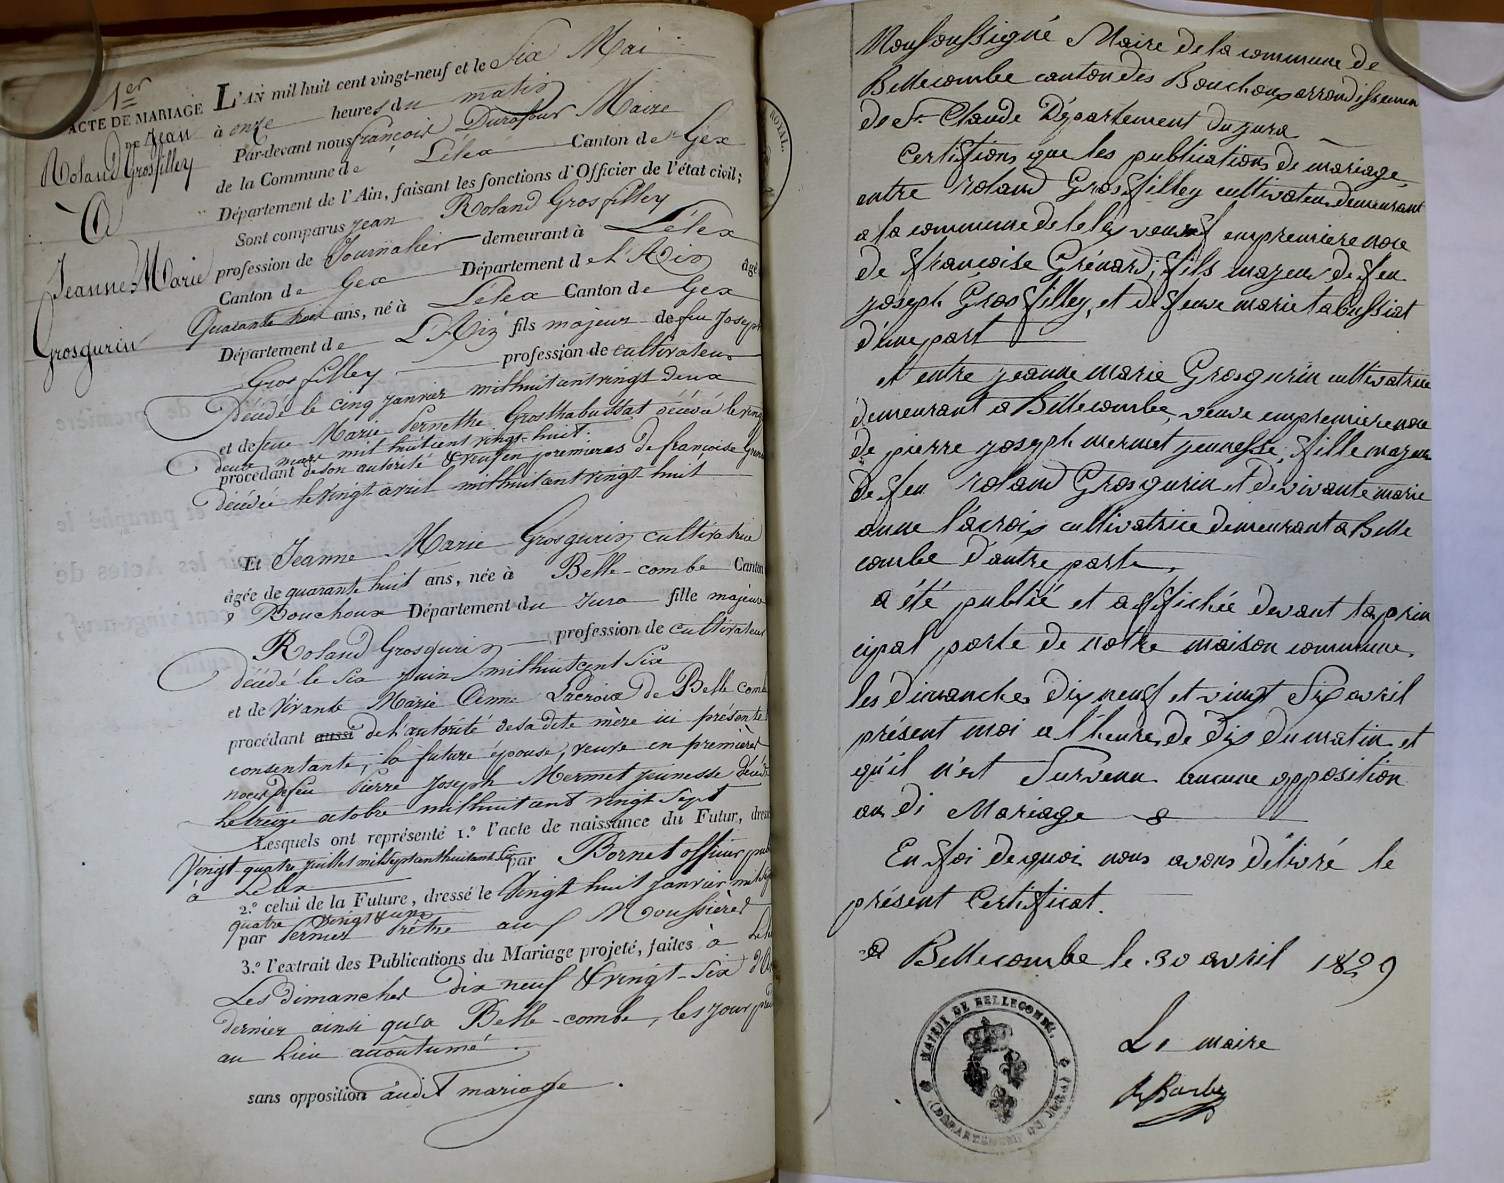 1er
ACTE DE MARIAGE
De Jean
Roland Grosfilley
&
Jeanne Marie
Grosgurin
L'AN mil huit cent vingt-neuf et le Six Mai
à onze heures du matin
Par-devant nous françois Durafour Maire
de la Commune de Lélex Canton de Gex
Département de l'Ain, faisant les fonctions d'Officier de l'état civil;
Sont comparus jean Roland Grosfilley
profession de Journalier demeurant à Lélex
Canton de Gex Département de l'Ain agé
Quarante trois ans, né à Lélex Canton de Gex
Département de L'Ain fils majeur de feu Joseph
Grosfilley profession de cultivateur
Décédé le cinq janvier mil huit cent vingt deux
et de feue Marie Pernethe Grosthabussiat décédée le vingt
deux mars mil huit cent vingt-huit.
procédant de son autorité & veuf en premieres de françoise
décédée le vingt avril mil huit cent vingt huit
Et Jeanne Marie Grosgurin cultivatrice
âgée de quarante huit ans, née à Belle-combe Canton
Bouchoux Département du Jura fille majeure
Roland Grosgurin profession de cultivateur
décédé le Six juin mil huit cent Six
et de Vivante Marie Anne Lacroix de Belle combe
procédant aussi de l'autorité de sa dite mère ici présente
consentante; la future épouse, veuve en premières
noces de feu Pierre Joseph Mermet jeunesse décédé
le treize octobre mil huit cent vingt Sept
Lesquels ont représenté 1.° l'acte de naissance du Futur, dressé
Vingt quatre juillet mil sept cent huitante par Bornet officier
à Lélex
2.° celui de la Future, dressé le Vingt huit janvier mil sept
quatre vingt & une
par Pernier Prêtre aux Moussières
3.° l'extrait des Publications du Mariage projeté, faites à
Les dimanches dix neuf & vingt-six
dernier ainsi qu'à Belle-combe, les jours
au Lieu accoutumé.
sans opposition audit mariage.
ROYAL
Nous soussigné Maire de la commune de
Bellecombe canton des Bouchoux arrondissemen
de St Claude Département du jura
Certifions que les publications de mariage
entre roland Grosfilley cultivateur demeurant
a la commune de lelex veuf en premiere noce
de françoise Grénard; fils majeur de feu
joseph Grosfilley, et de feue marie tabussiat
d'une part
et entre jeanne marie Grosgurin cultivatrice
demeurant a Bellecombe, veuve en premiere noce
de pierre joseph mermet jeunesse, fille majeure
de feu roland Grosgurin et de vivante marie
anne lacroix cultivatrice demeurant a Belle
combe d'autre parte,
a été publié et affichée devant la prin
cipal porte de notre maison commune,
les dimanches dix neuf et vingt Six avril
présent moi a l'heure de dix du matin et
qu'il n'est Survenu aucune opposition
au di Mariage
En foi de quoi nous avons délivré le
présent Certificat.
a Bellecombe le 30 avril 1829
Le maire
MAIRIE DE BELLECOMBE
(DÉPARTEMENT DU JURA)